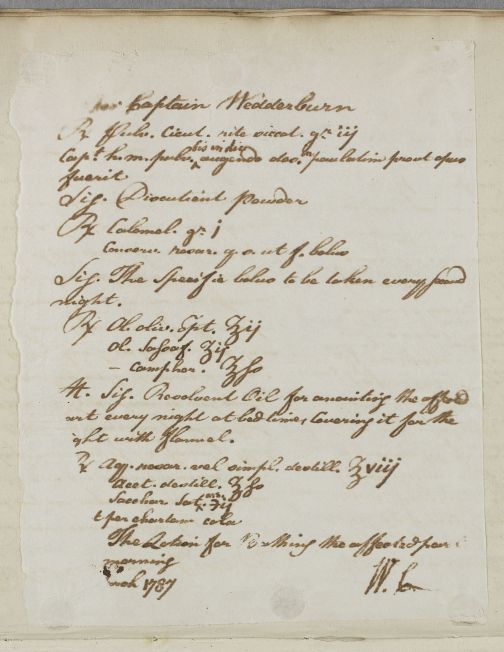 for Captain Wedderburn
℞ Pulv. Cicut. rite siccat. gr. iij
Capt. h. m. pulv. bis in die augendo dos.in paulatim prout opus
fuerit
Sig. Discutient Powder
℞ Calomel. gr. j
Conserv. rosar. q. s. ut f. bolus
Sig. The Specific bolus to be taken every second
night.
℞ Ol. oliv. opt. ℥ij
ol. Sassaf. ʒij
– Camphor. ʒss
M. Sig. Resolvent Oil for anointing the affected
art every night at bed time, Covering it for the
ght with flannel.
℞ Aq. rosar. vel simpl. destill. ℥viij
Acet. destill. ℥ss
Sacchar. Sat.
t per chartam cola
The Lotion for Bathing the affected part
morning
rch 1787
W. C